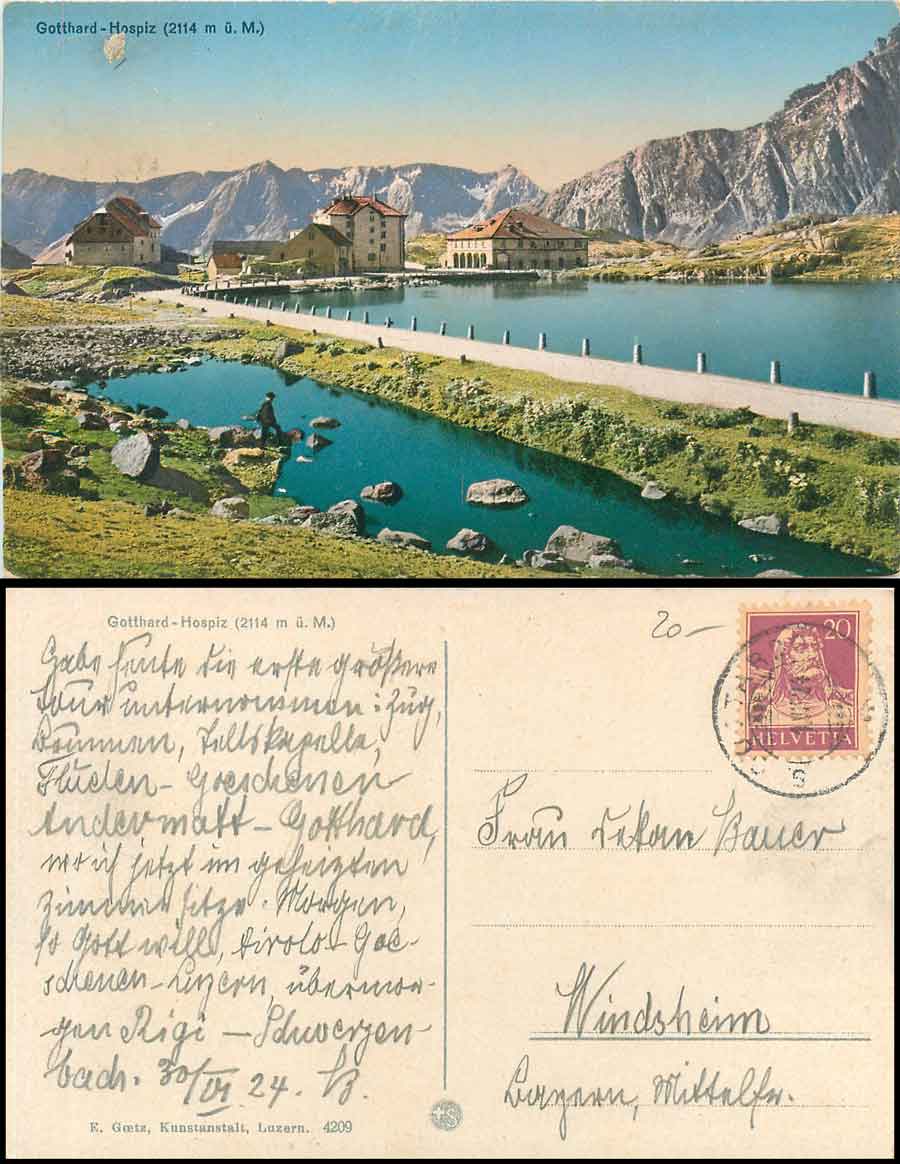 Gotthard-Hospiz (2114 m ü. M.)
Gotthard-Hospiz (2114 m ü. M.)
Gabe heute die erste größere
Tour unternommen: Zug,
Brunnen, Tellskapelle,
Flüelen - Goeschenen
Andermatt - Gotthard,
wo ich jetzt im geheizten
Zimmer sitze. Morgen,
so Gott will, Airolo - Goe-
schenen - Luzern, übermor-
gen Rigi - Schwerzen-
bach. 30/VI 24. B.
E. Goetz, Kunstanstalt, Luzern. 4209
20-
20
HELVETIA
Frau Dekan Bauer
Windsheim
Bayern, Mittelfr.